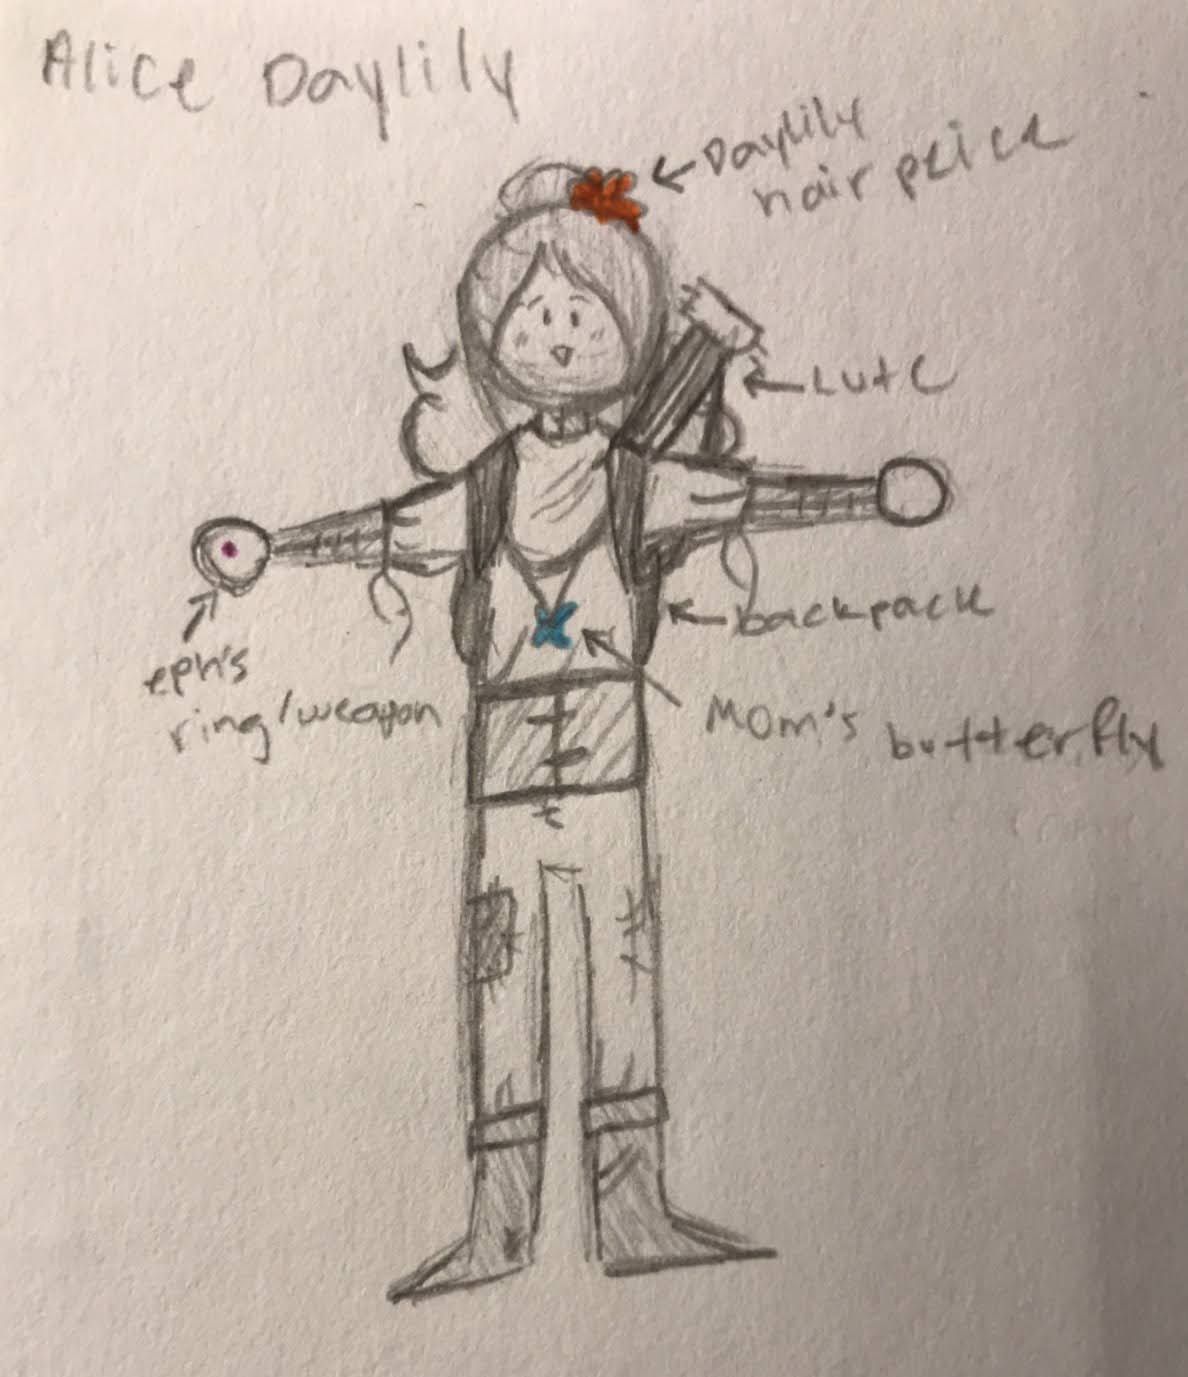 Alice Daylily
Daylily
hair peice
Lute
backpack
eph's
ring/weapon
Mom's butterfly